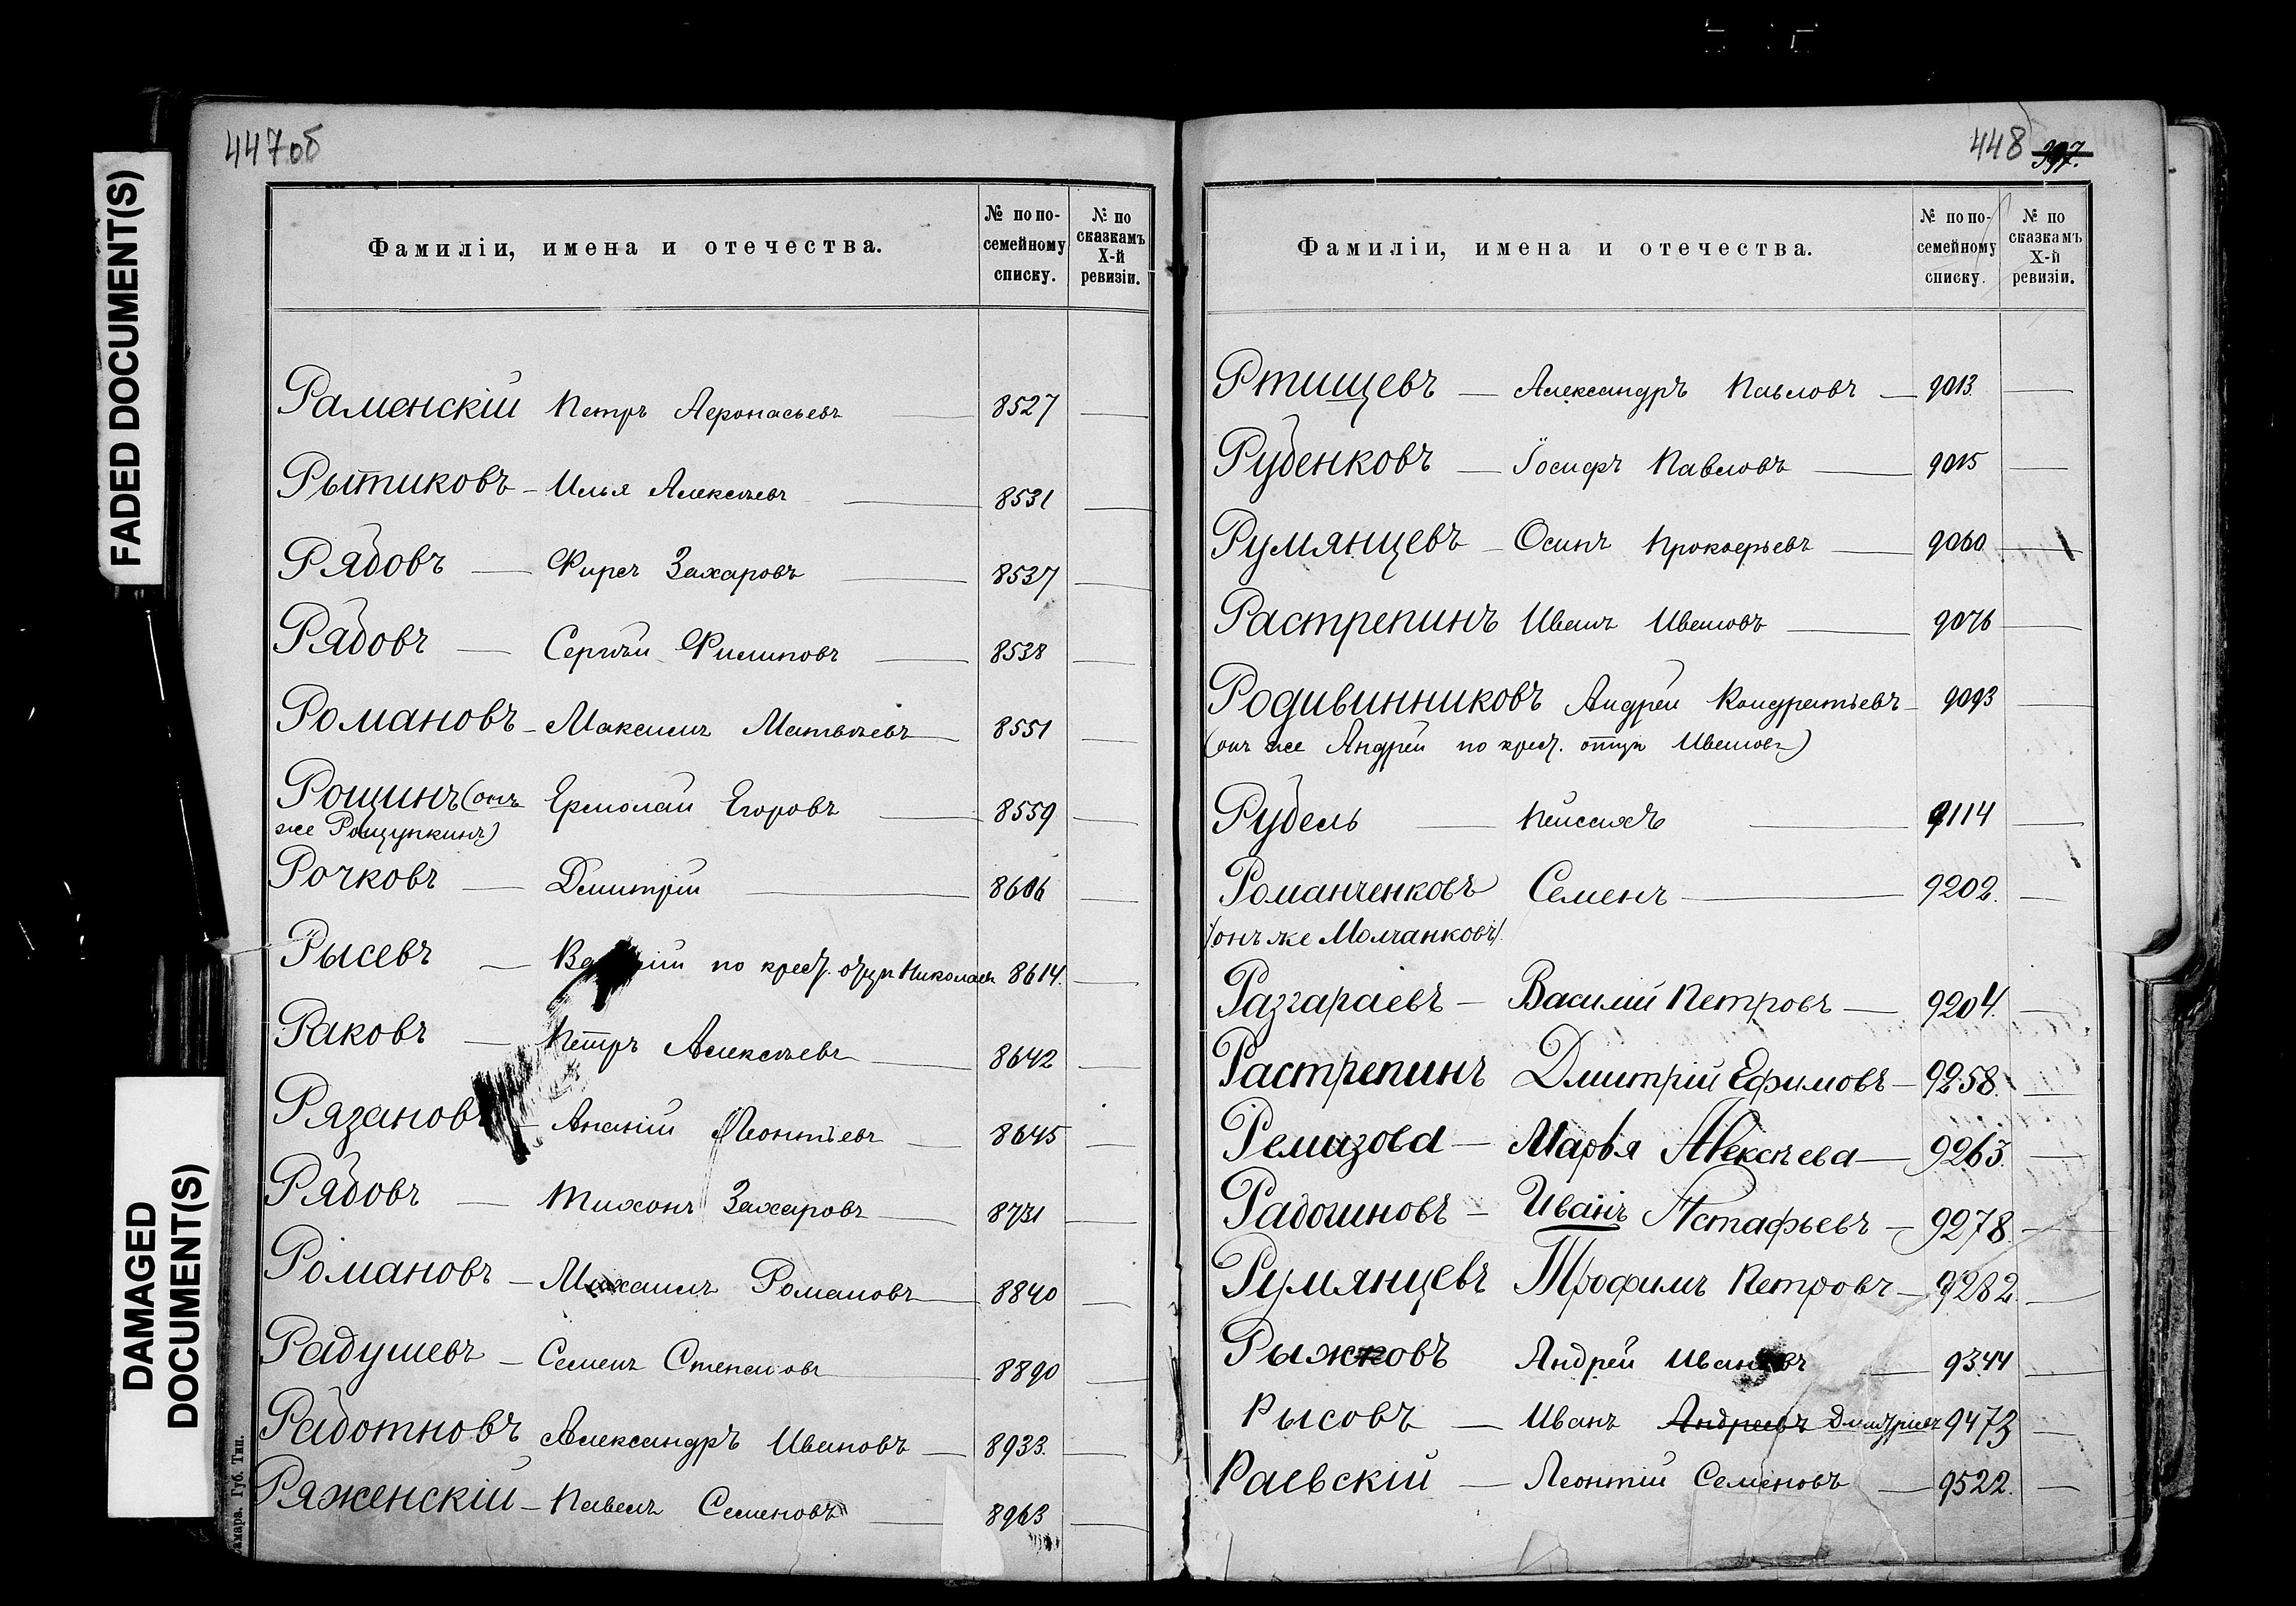 FADED DOCUMENT(S)
DAMAGED
DOCUMENT(S)
447об
Фамиліи, имена и отечества.
№ по по-
семейному
списку.
№ по
сказкамъ
X-й
ревизіи.
Раменскій Петръ Афонасьевъ 8527
Рытиковъ - Илья Алексѣевъ 8531
Рябовъ — Фирсъ Захаровъ 8537
Рябовъ — Сергѣй Филиповъ 8538
Романовъ - Максимъ Матвѣевъ 8551
Рощинъ (онъ Ермолай Егоровъ 8559
же Рощупкинъ)
Рочковъ — Дмитрій 8606
Рысевъ — по крест. отцу Николаевъ 8614.
Раковъ — Петръ Алексѣевъ 8642
Рязановъ - Ананій Леонтьевъ 8645
Рябовъ — Тихонъ Захаровъ 8731
Романовъ - Михаилъ Романовъ 8840
Радушевъ - Семенъ Степановъ 8890
Работновъ Александръ Ивановъ 8933.
Ряженскій - Павелъ Семеновъ 8963
Губ. Тип.
448 397.
Фамиліи, имена и отечества.
№ по по-
семейному
списку.
№ по
сказкамъ
X-й
ревизіи.
Ртищевъ — Александръ Павловъ — 9013.
Рубенковъ — Іосифъ Павловъ — 9015
Румянцевъ - Осипъ Прокофьевъ — 9060
Растрепинъ Иванъ Ивановъ — 9076
Родивинниковъ Андрей Кондратьевъ - 9093
(онъ же Андрей по крест. отцу Ивановъ)
Рубель — 9114
Романченковъ Семенъ — 9202.
(онъ же Молчанковъ).
Разгараевъ - Василий Петровъ — 9204.
Растрепинъ Дмитрій Ефимовъ - 9258.
Ремизова - Марья Алексѣева - 9263.
Радошновъ - Иванъ Астафьевъ - 9278.
Румянцевъ Трофимъ Петровъ - 9282.
Рыжковъ Андрей Ивановъ — 9344
Рысовъ — Иванъ Андреевъ Дмитріевъ 9473
Раевскій — Леонтій Семеновъ — 9522.